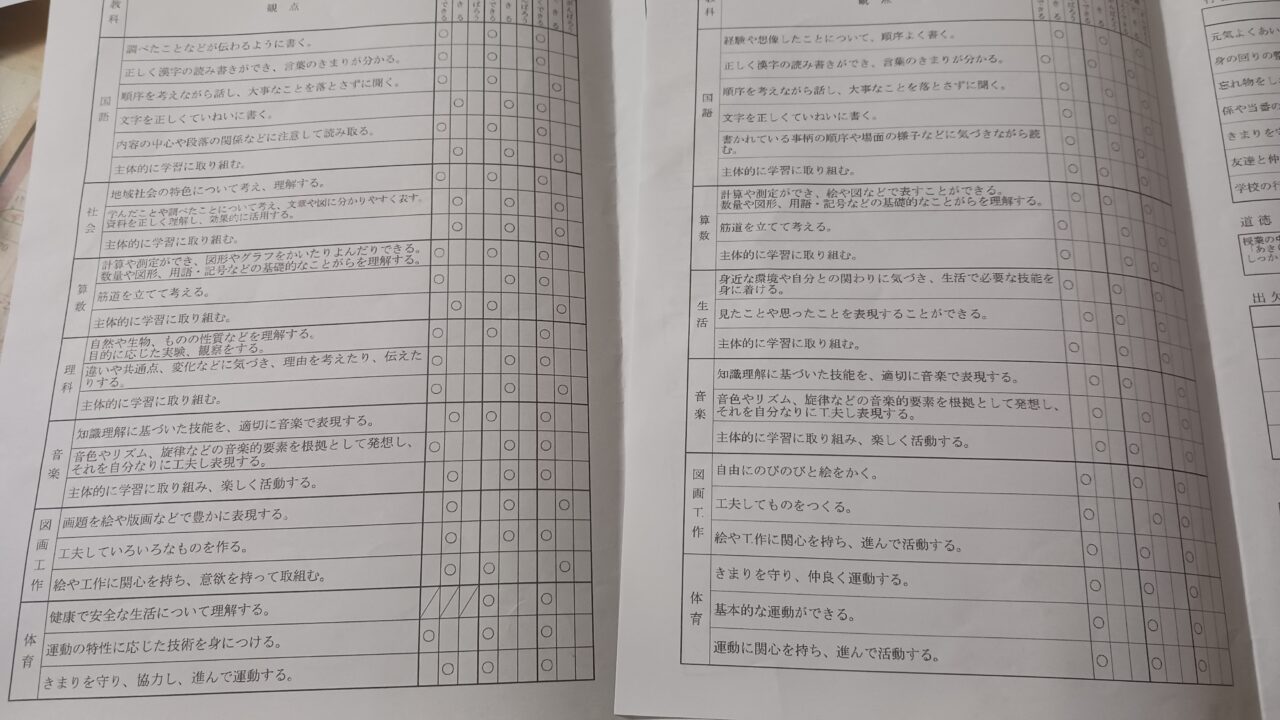 教科
観点
国語
調べたことなどが伝わるように書く。
正しく漢字の読み書きができ、言葉のきまりが分かる。
順序を考えながら話し、大事なことを落とさずに聞く。
文字を正しくていねいに書く。
内容の中心や段落の関係などに注意して読み取る。
主体的に学習に取り組む。
社会
地域社会の特色について考え、理解する。
学んだことや調べたことについて考え、文章や図に分かりやすく表す。
資料を正しく理解し、効果的に活用する。
主体的に学習に取り組む。
算数
計算や測定ができ、図形やグラフをかいたりよんだりできる。
数量や図形、用語・記号などの基礎的なことがらを理解する。
筋道を立てて考える。
主体的に学習に取り組む。
理科
自然や生物、ものの性質などを理解する。
目的に応じた実験、観察をする。
違いや共通点、変化などに気づき、理由を考えたり、伝えた
りする。
主体的に学習に取り組む。
音楽
知識理解に基づいた技能を、適切に音楽で表現する。
音色やリズム、旋律などの音楽的要素を根拠として発想し、
それを自分なりに工夫し表現する。
主体的に学習に取り組み、楽しく活動する。
図画工作
画題を絵や版画などで豊かに表現する。
工夫していろいろなものを作る。
絵や工作に関心を持ち、意欲を持って取組む。
体育
健康で安全な生活について理解する。
運動の特性に応じた技術を身につける。
きまりを守り、協力し、進んで運動する。
科
観点
国語
経験や想像したことについて、順序よく書く。
正しく漢字の読み書きができ、言葉のきまりが分かる。
順序を考えながら話し、大事なことを落とさずに聞く。
文字を正しくていねいに書く。
書かれている事柄の順序や場面の様子などに気づきながら読
む。
主体的に学習に取り組む。
算数
計算や測定ができ、絵や図などで表すことができる。
数量や図形、用語・記号などの基礎的なことがらを理解する。
筋道を立てて考える。
主体的に学習に取り組む。
生活
身近な環境や自分との関わりに気づき、生活で必要な技能を
身に着ける。
見たことや思ったことを表現することができる。
主体的に学習に取り組む。
音楽
知識理解に基づいた技能を、適切に音楽で表現する。
音色やリズム、旋律などの音楽的要素を根拠として発想し、
それを自分なりに工夫し表現する。
主体的に学習に取り組み、楽しく活動する。
図画工作
自由にのびのびと絵をかく。
工夫してものをつくる。
絵や工作に関心を持ち、進んで活動する。
体育
きまりを守り、仲良く運動する。
基本的な運動ができる。
運動に関心を持ち、進んで活動する。
元気よくあい
身の回りの整
忘れ物をし
係や当番の
きまりを
友達と仲
学校の行
道徳
授業の中
あさ
しっか
出欠